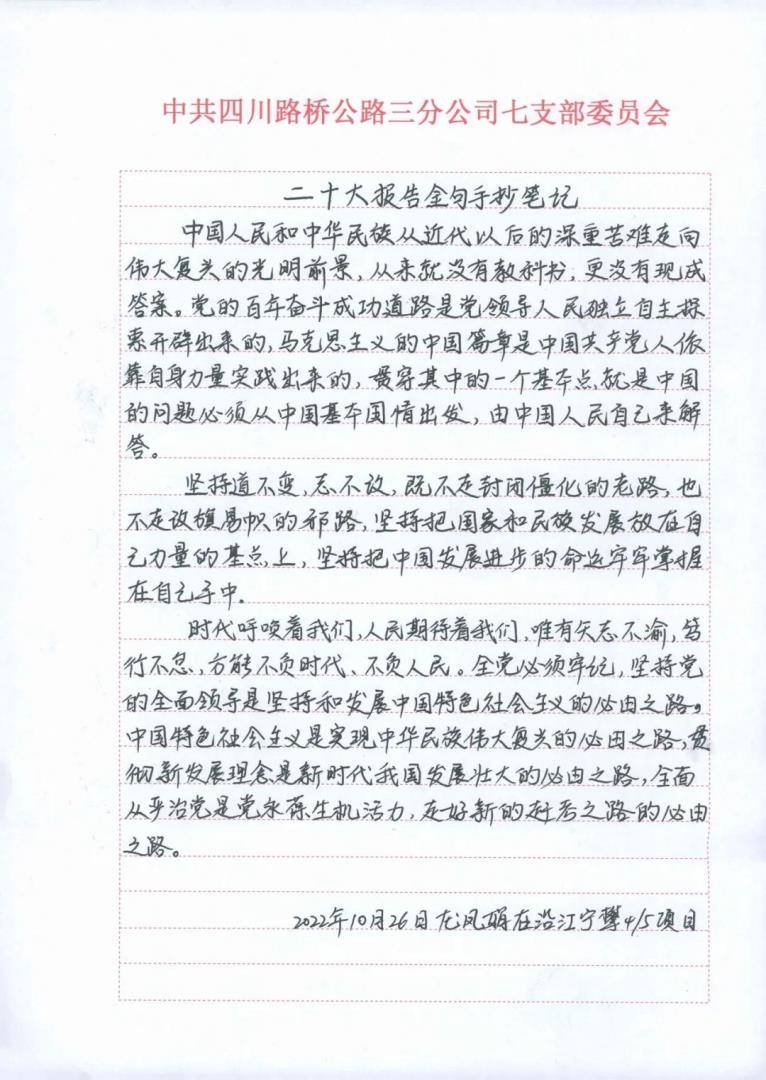 中共四川路桥公路三分公司七支部委员会
二十大报告金句手抄笔记
中国人民和中华民族从近代以后的深重苦难走向
伟大复兴的光明前景，从来就没有教科书，更没有现成
答案。党的百年奋斗成功道路是党领导人民独立自主探
索开辟出来的，马克思主义的中国篇章是中国共产党人依
靠自身力量实践出来的，贯穿其中的一个基本点就是中国
的问题必须从中国基本国情出发，由中国人民自己来解
答。
坚持道不变，志不改，既不走封闭僵化的老路，也
不走改旗易帜的邪路，坚持把国家和民族发展放在自
己力量的基点上，坚持把中国发展进步的命运牢牢掌握
在自己手中.
时代呼唤着我们，人民期待着我们，唯有矢志不渝，笃
行不怠，方能不负时代、不负人民。全党必须牢记，坚持党
的全面领导是坚持和发展中国特色社会主义的必由之路。
中国特色社会主义是实现中华民族伟大复兴的必由之路，贯
彻新发展理念是新时代我国发展壮大的必由之路，全面
从严治党是党永葆生机活力，走好新的赶考之路的必由
之路。
2022年10月26日龙凤 在沿江宁攀4/5项目